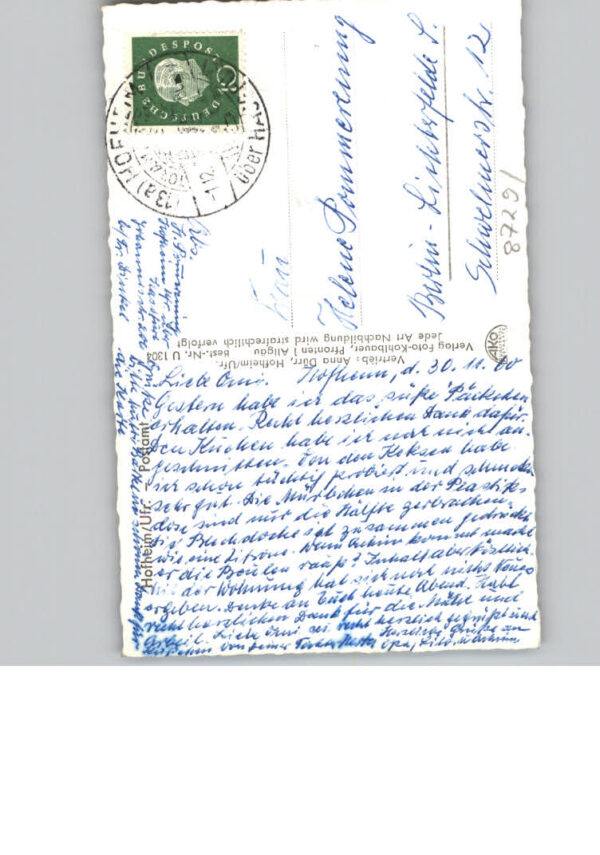 DEUTSCHE BUNDESPOST
(13a) HOFHEIM
über HASS
-1.12.
Frau
Helene Pommerening
Berlin-Lichterfelde S.
Schwelmerstr. 12
8729/
AKO
Vertrieb: Anna Dürr, Hofheim/Ufr.
Verlag Foto-Kohlbauer, Pfronten i. Allgäu Best.-Nr. U 1304
Jede Art Nachbildung wird strafrechtlich verfolgt
Hofheim/Ufr. — Postamt
Abs.
Hofheim
Liebe Omi. Hofheim, d. 30.11.60
Gestern habe ich das süße Päckchen
erhalten. Recht herzlichen Dank dafür.
Den Kuchen habe ich noch nicht an-
geschnitten. Von den Keksen habe
ich schon tüchtig probiert und schmecken
sehr gut. Die in der Plastik-
dose sind nur die Hälfte zerbrochen.
Die Blechdose ist zusammen gedrückt
wie eine Zitrone. Wenn Achim kommt macht
er die Beulen raus? Inhalt aber köstlich.
Mit der Wohnung hat sich noch nichts Neues
ergeben. Denke an Euch heute Abend. Habt
recht herzlichen Dank für die Mühe und
Arbeit. Liebe Omi sei recht herzlich gegrüßt und
von Deiner Tochter Herzliche Grüße an
Opa,